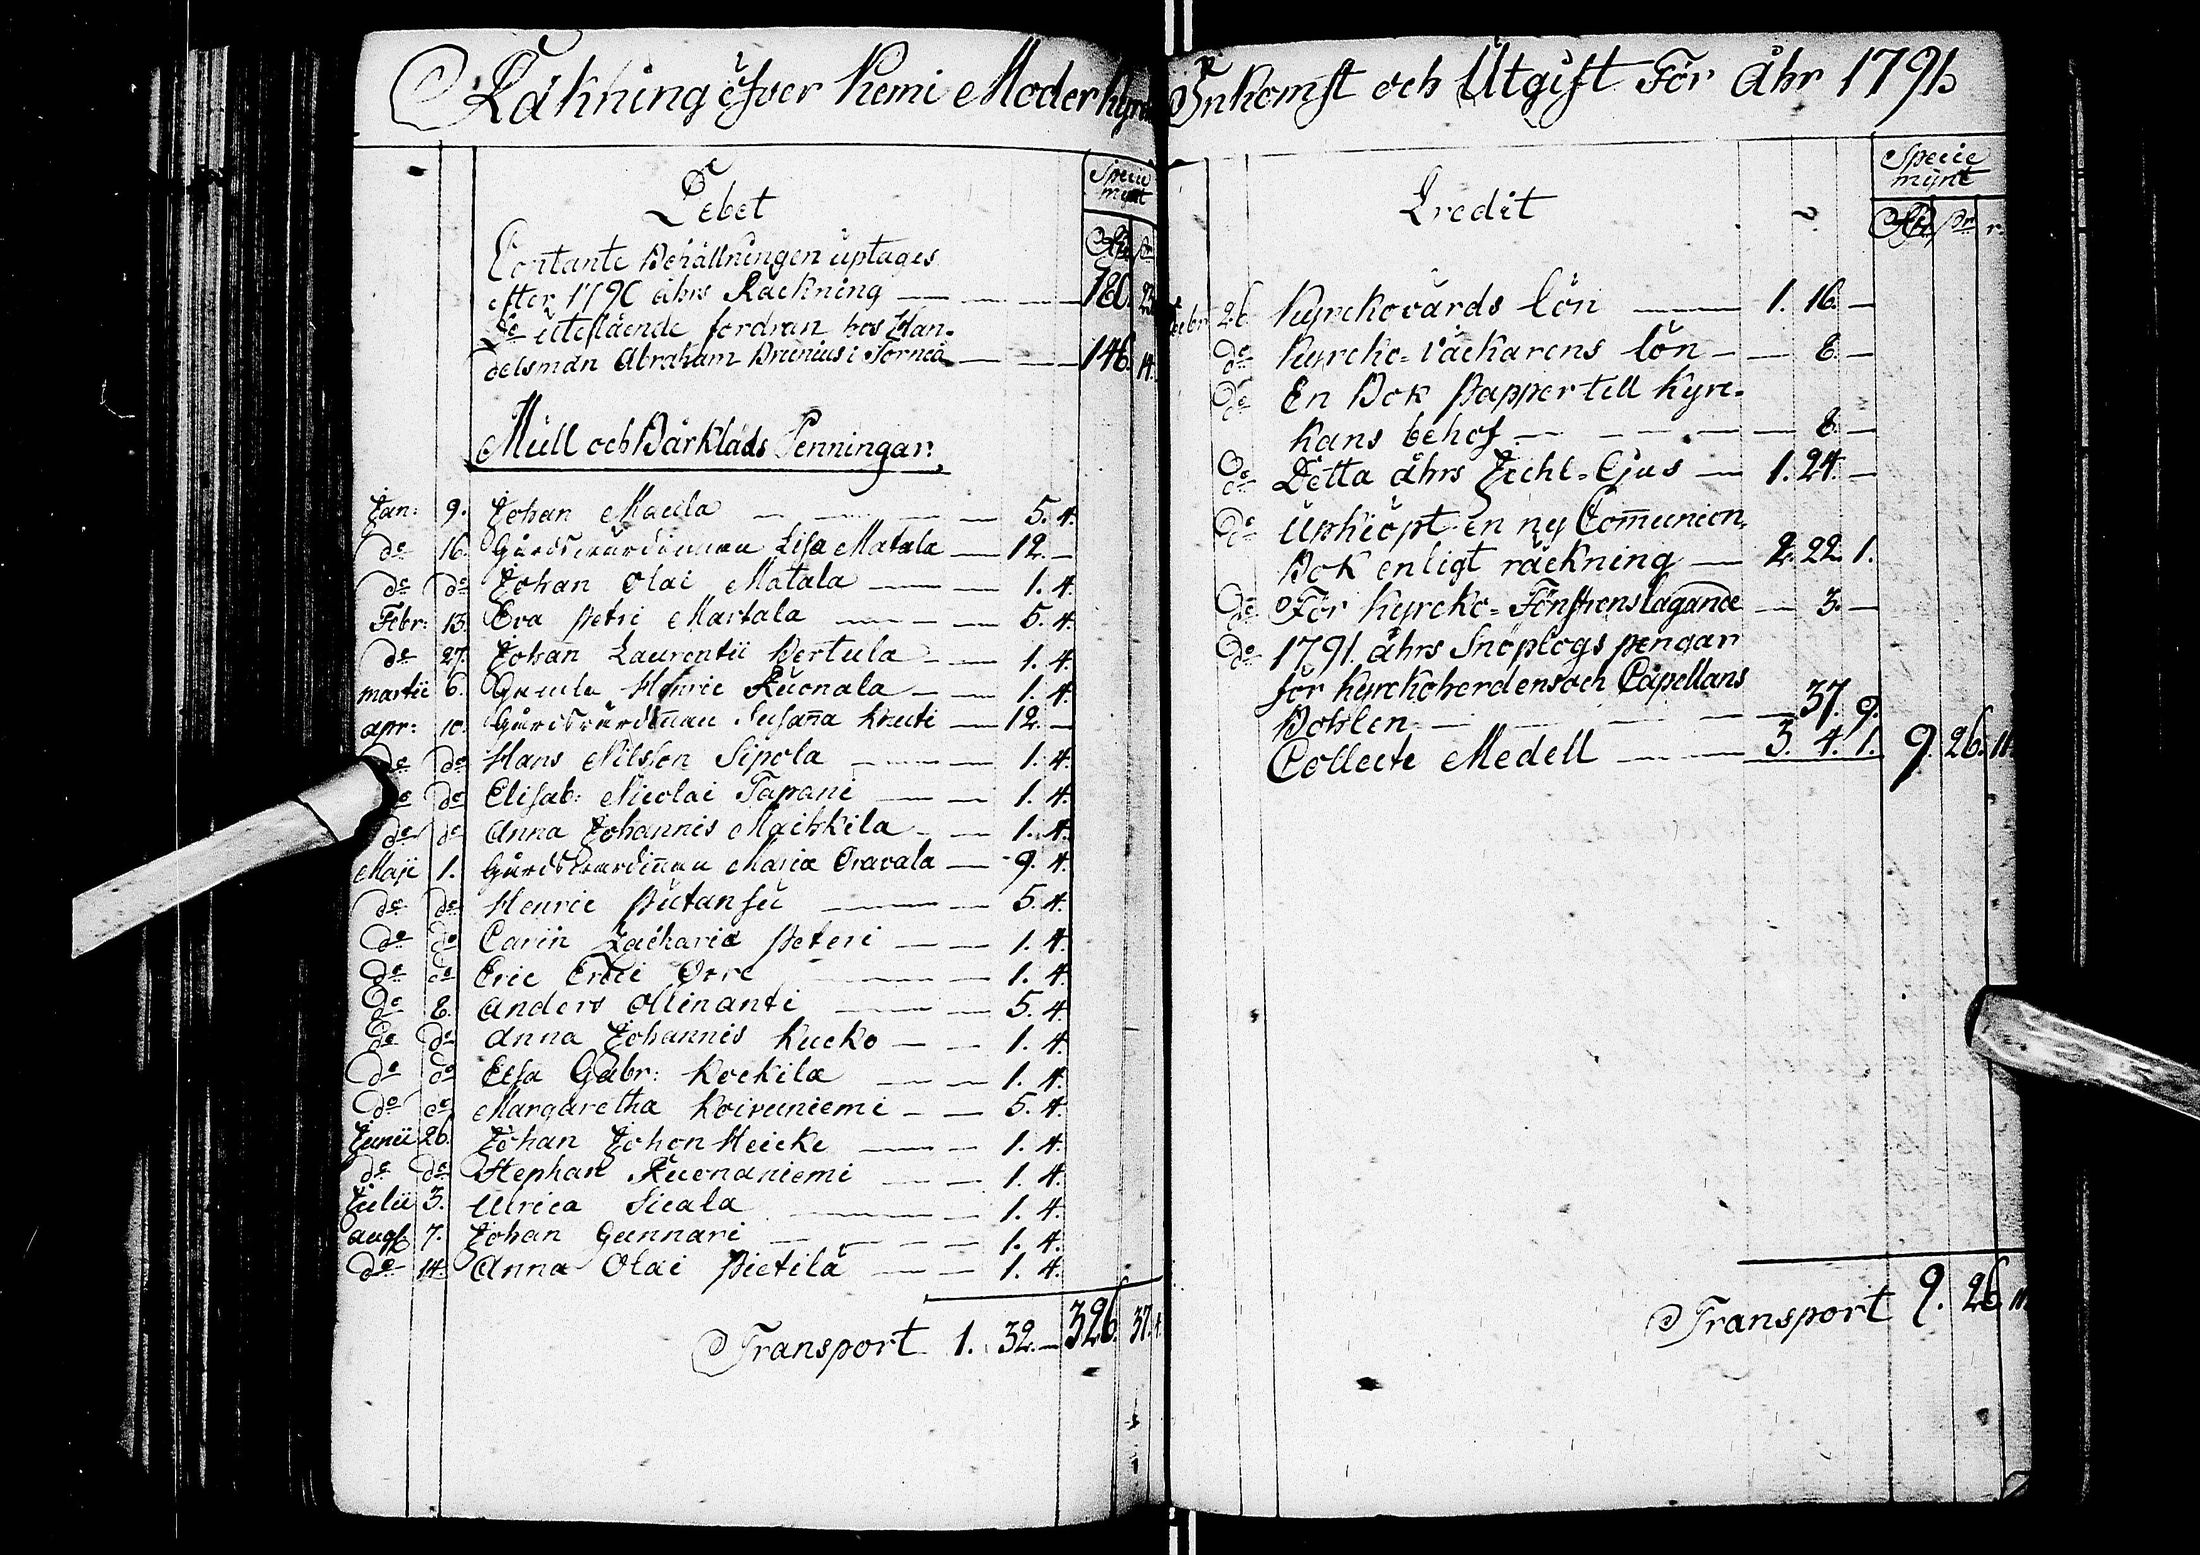 Räkning öfver Kemi Moderkyrck
Debet
Specie
mynt
Contante Behållningen uptages
efter 1790 åhrs Räckning — 180. 23
Do uteslående fordran hos Han-
delsman Abraham Brunius i Torneå — 146. 14.
Mull och Bårklads Penningar.
Jan: 9. Johan Maula — 5. 4.
do 16. Gårdsvärdinnan Lisa Matala — 12. —
do do Johan Olai Matala — 1. 4.
Febr: 13. Eva Petri Martala — 5. 4.
do 27. Johan Laurentii Pertula — 1. 4.
martii 6. Henric Ruonala — 1. 4.
apr: 10. Gårdsvärdinnan Susanna Knuti — 12. —
do do Hans Nilsson Sipola — 1. 4.
do do Elisab: Nicolai Tapani — 1. 4.
do do Anna Johannis Maihkila — 1. 4.
Maji 1. Gårdsvärdinnan Maria Oravala — 9. 4.
do do Henric Putansu — 5. 4.
do do Carin Zacharia Peteri — 1. 4.
do do Eric Erici Orre — 1. 4.
do 8. Anders Ollinanti — 5. 4.
do do Anna Johannis Kucko — 1. 4.
do do Elsa Gabr: Kockila — 1. 4.
do do Margaretha Koivuniemi — 5. 4.
Junii 26. Johan Johan Heicke — 1. 4.
do do Stephan Ruonaniemi — 1. 4.
Julii 3. Ulrica Sicala — 1. 4.
aug 7. Johan Gunnari — 1. 4.
do 14. Anna Olai Pietilä — 1. 4.
Transport 1. 32. — 326. 37.
Inkomst och Utgift För åhr 1791
Credit
Specie
mynt
Febr 26. Kyrckovärds lön — 1. 16. —
do Kyrcko-väckarens lön — 8. —
do En Bok Papper till Kyrc-
kans behof — 8. —
do Detta åhrs Techt-Ljus — 1. 24. —
do Upkiöpt en ny Communion
Bok enligt räckning — 2. 22. 1.
do För Kyrcko-Fönstrens lagande — 3. —
do 1791. åhrs Snöplogs pengar
för Kyrckoherdens och Capellans
Bohlen — 37. 9.
Collecte Medell — 3. 4. 1. 9. 26. 11.
Transport 9. 26. 11.